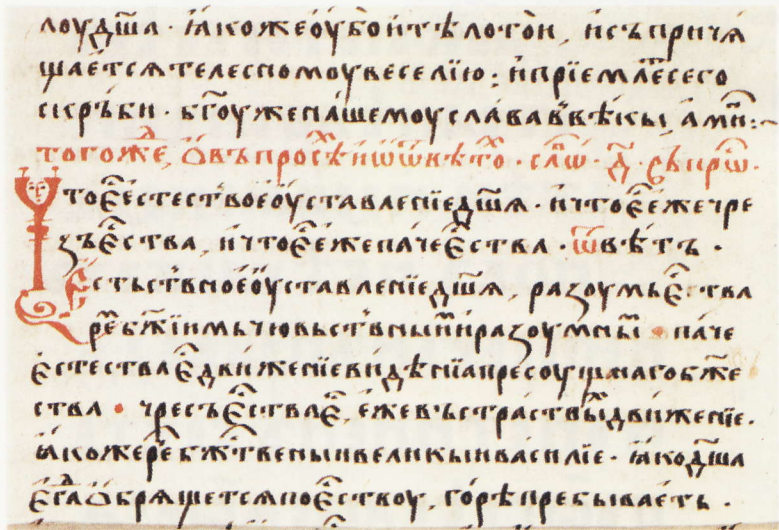 лоудш҃а · ꙗкоже оубо и тѣло то́и, и съ прича
щаетсѧ телесномоу веселїю : и прїемлѐ сего
скръби · бг҃оу же нашемоу слава въ вѣкы, аминь :~
того́же, ѿ въпросѣ и ѿвѣто · сло҃в · д҃ · въпрⷪ҇ ·
Что е҃ естествⸯное оуставленїе дш҃ѧ · и что е҃ еже чре
зъ е҃ства, и что е҃ еже паче е҃ства · ѿвѣтъ ·
Естьствⸯное оуставленїе дш҃ѧ, разоумь е҃ства
рⷱ҇е бж҃їимь чювьствⸯныи и разоумныи · паче
естества е҃ движенїе видѣнїа пресоущнаго бж҃е
ства · чресъ е҃ства е҃, еже въ страстⷯвы движенїе ·
ꙗкоже рⷱ҇е бж҃твеныи великыи василїе · ꙗко дш҃а
егда ѡбрѧщетсѧ по е҃ствоу, горѣ пребываеть ·